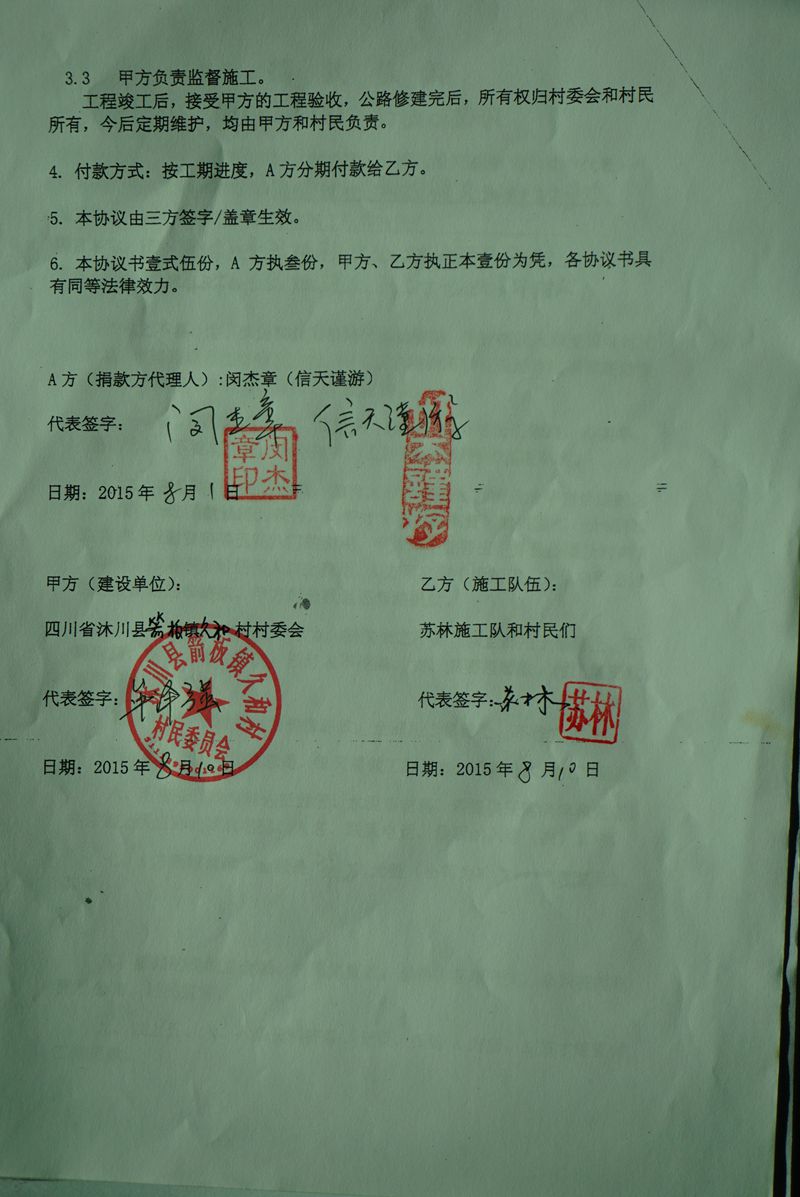 3.3 甲方负责监督施工。
工程竣工后，接受甲方的工程验收，公路修建完后，所有权归村委会和村民
所有，今后定期维护，均由甲方和村民负责。
4. 付款方式：按工期进度，A方分期付款给乙方。
5. 本协议由三方签字/盖章生效。
6. 本协议书壹式伍份，A 方执叁份，甲方、乙方执正本壹份为凭，各协议书具
有同等法律效力。
A方（捐款方代理人）:闵杰章（信天谨游）
代表签字： 闵杰章 信天谨游
闵杰章印
日期：2015年8月1日
甲方（建设单位）： 乙方（施工队伍）：
四川省沐川县箭板镇久和村村委会 苏林施工队和村民们
川县箭板镇久和村
村民委员会
代表签字： 代表签字：苏林 苏林
日期：2015年8月10日 日期：2015年8月10日